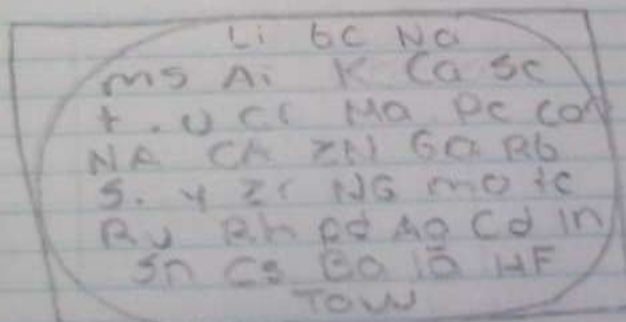 Li be Na
ms Ai K Ca Sc
t. U Cr Ma Pe Co
NA CA ZN Ga Rb
S. y Zr NG mo tc
Ru Rh Pd Ag Cd in
Sn Cs Ba la HF